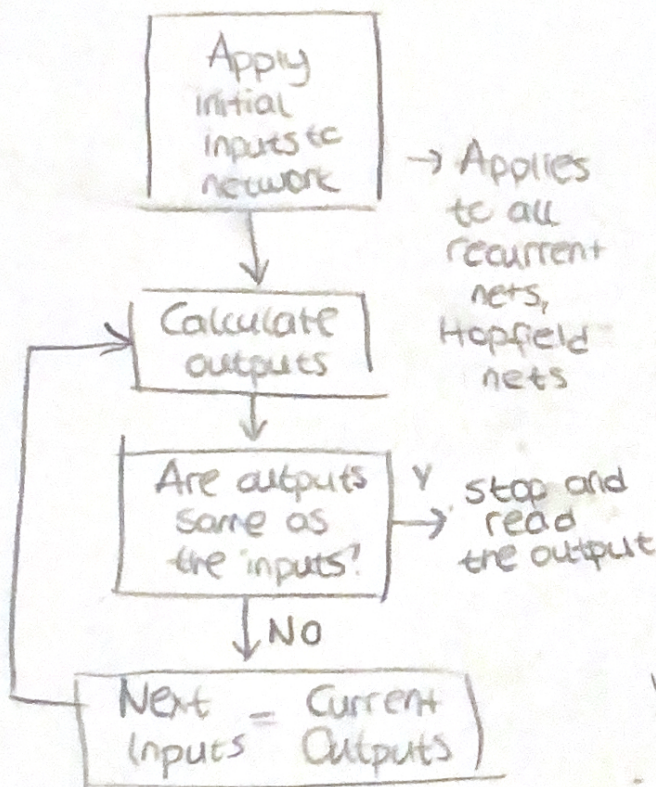 Apply
initial
inputs to
network
→ Applies
to all
recurrent
nets,
Hopfield
nets
Calculate
outputs
Are outputs
same as
the inputs?
Y
stop and
read
the output
NO
Next Inputs = Current Outputs